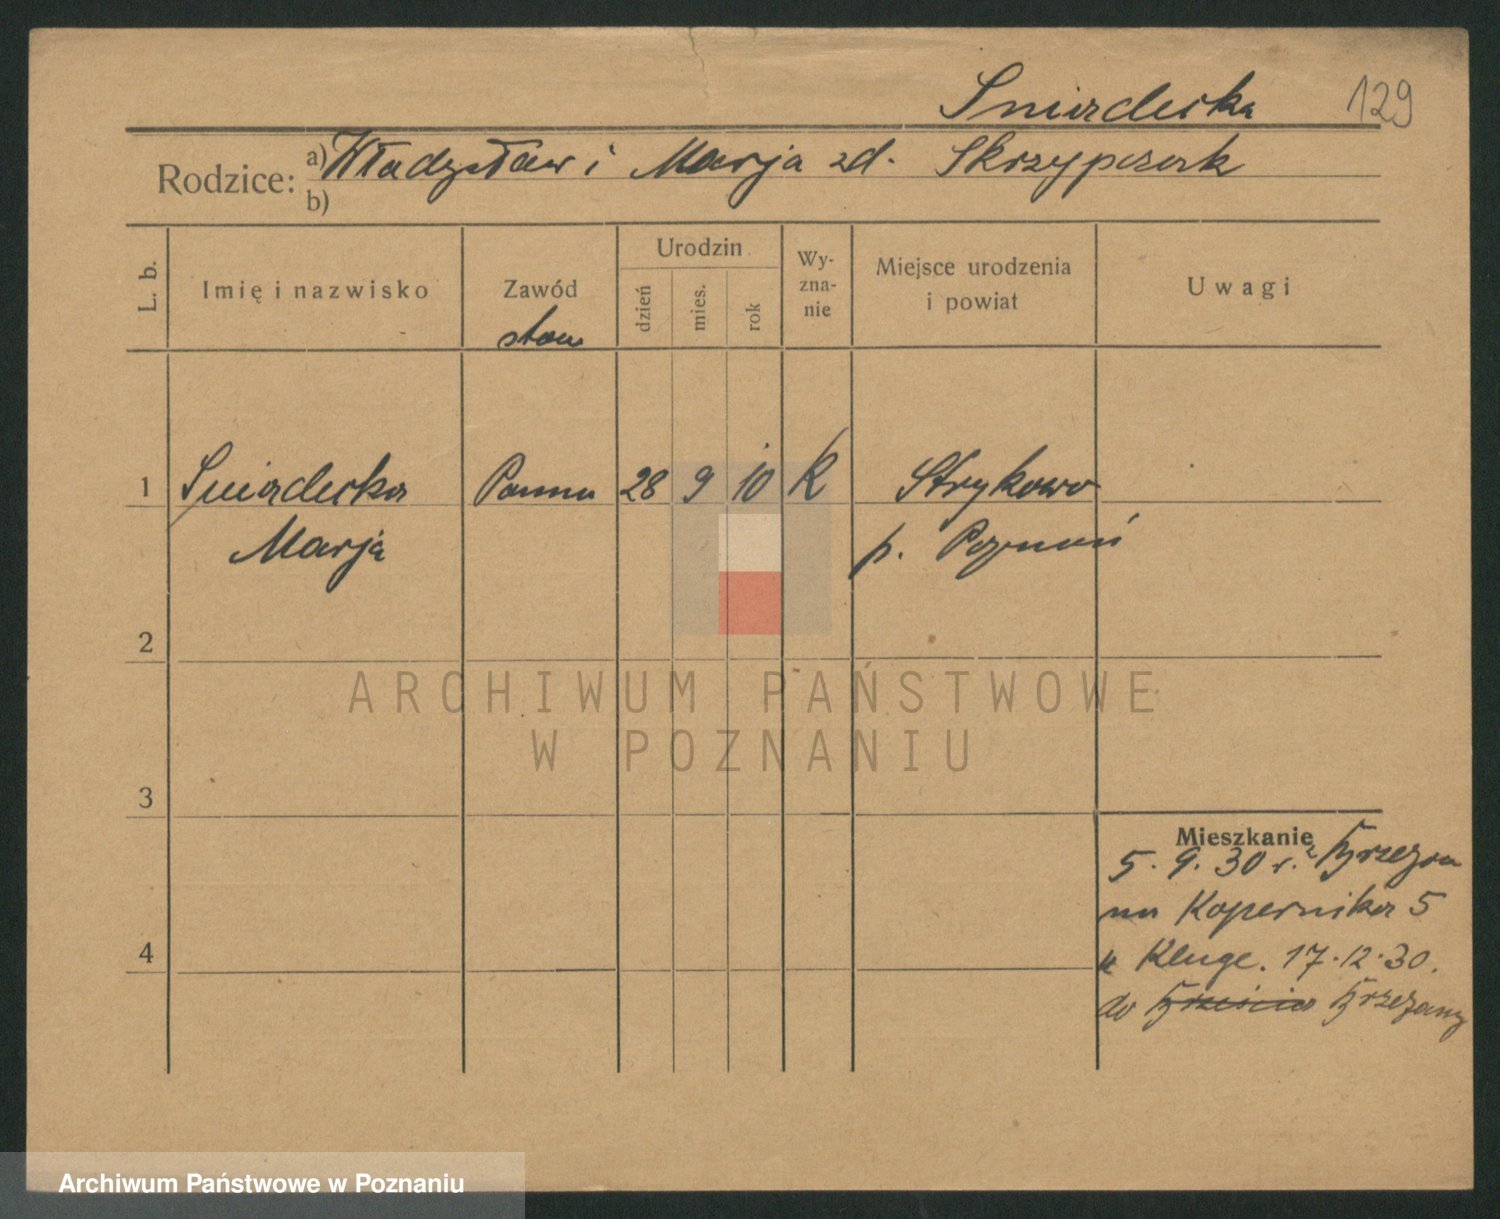 Sniadecka 129
Rodzice: a) Władysław i Marja zd. Skrzypczak
b)
L. b.
Imię i nazwisko
Zawód
stan
Urodzin
dzień
mies.
rok
Wy-
zna-
nie
Miejsce urodzenia
i powiat
Uwagi
1 Sniadecka Panna 28 9 10 K Strykowo
Marja p. Poznań
2
ARCHIWUM PAŃSTWOWE
W POZNANIU
3
Mieszkanie
5. 9. 30 r. z
na Kopernika 5
u Kluge. 17.12.30.
do
4
Archiwum Państwowe w Poznaniu